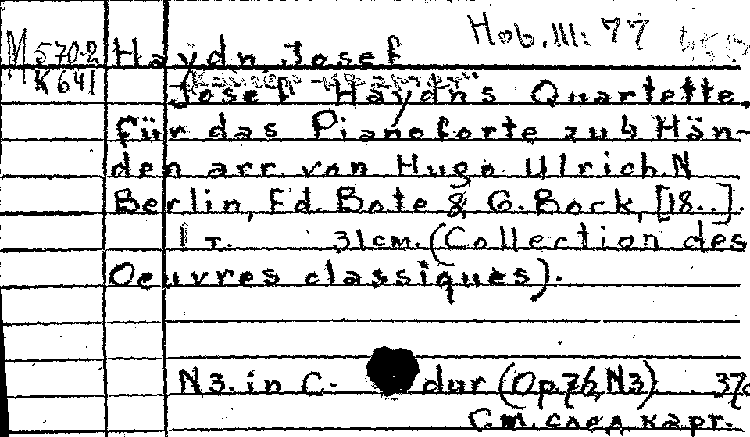 Hob. III: 77
M 570.2 Haydn Josef
K 641
Josef Haydn's Quartette,
für das Pianoforte zu 4 Hän-
den arr. von Hugo Ulrich. N
Berlin, Ed. Bote & G. Bock, [18..].
1 т. 31 cm. (Collection des
Oeuvres classiques).
N3. in C- dur (Op. 76, N3)
См. след. карт.